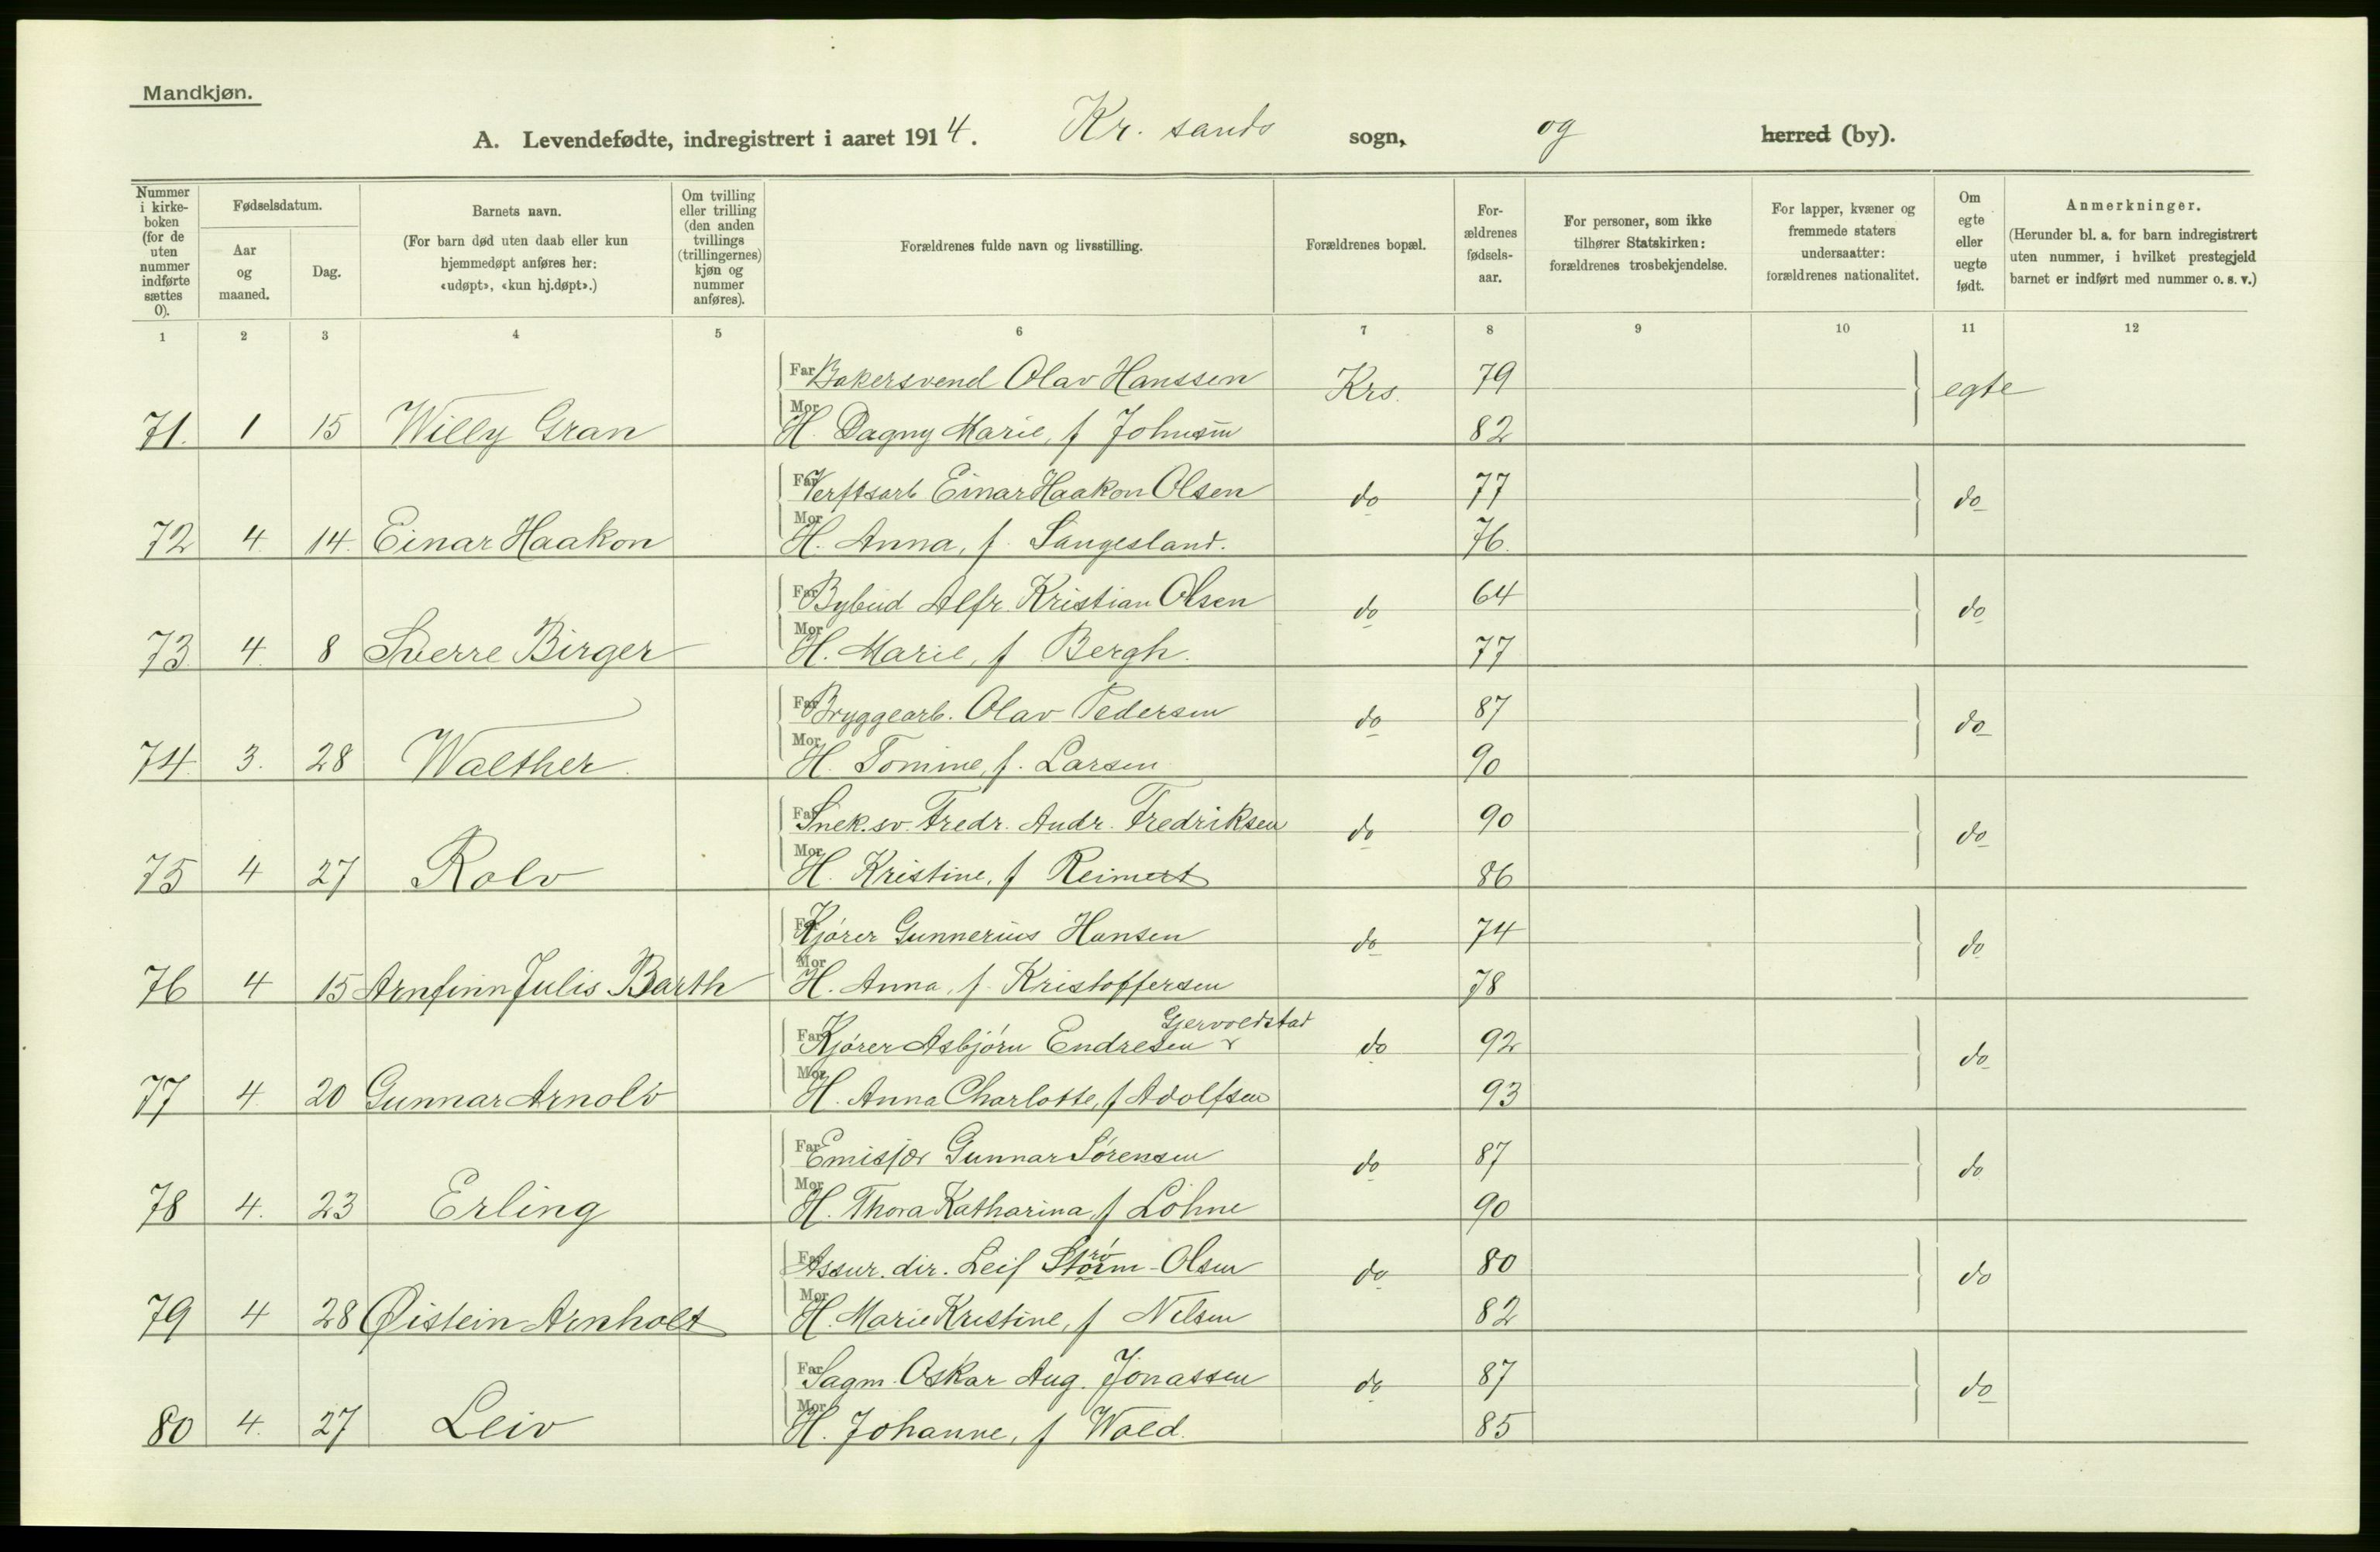 Mandkjøn.
A. Levendefødte, indregistrert i aaret 1914. Kr. sands sogn, og herred (by).
Nummer i kirke-boken (for de uten nummer indførte sættes 0).
Fødselsdatum.
Aar og maaned.
Dag.
Barnets navn.
(For barn død uten daab eller kun hjemmedøpt anføres her: «udøpt», «kun hj.døpt».)
Om tvilling eller trilling (den anden tvillings (trillingernes) kjøn og nummer anføres).
Forældrenes fulde navn og livsstilling.
Forældrenes bopæl.
For-ældrenes fødsels-aar.
For personer, som ikke tilhører Statskirken: forældrenes trosbekjendelse.
For lapper, kvæner og fremmede staters undersaatter: forældrenes nationalitet.
Om egte eller uegte født.
Anmerkninger.
(Herunder bl. a. for barn indregistrert uten nummer, i hvilket prestegjeld barnet er indført med nummer o. s. v.)
1 2 3 4 5 6 7 8 9 10 11 12
Far Bakersvend Olav Hanssen Krs. 79 egte
71. 1 15 Willy Gran Mor H. Dagny Marie, f Johnsen 82
Far Verftsarb Einar Haakon Olsen do 77 do
72 4 14. Einar Haakon Mor H. Anna, f. Langesland. 76.
Far Bybud Alfr. Kristian Olsen do 64 do
73. 4. 8 Sverre Birger Mor H. Marie, f Bergh. 77
Far Bryggearb. Olav Pedersen do 87 do
74. 3. 28 Walther. Mor H. Tomine, f. Larsen 90
Far Snek.sv. Fredr. Andr. Fredriksen do 90 do
75 4 27 Rolv Mor H. Kristine, f Reimert 86
Far Kjører Gunnerius Hansen do 74 do
76 4 15 Arnfinn Julis Barth Mor H. Anna, f. Kristoffersen 78
Gjervoldstad
Far Kjører Asbjørn Endresen do 92 do
77 4. 20 Gunnar Arnolv Mor H. Anna Charlotte, f Adolfsen 93
Far Emisjær Gunnar Sørensen do 87 do
78 4. 23 Erling Mor H. Thora Katharina, f Løhne 90
Far Assur. dir. Leif Strøm-Olsen do 80 do
79 4 28 Øistein Arnholt Mor H. Marie Kristine, f Nilsen 82
Far Sagm. Oskar Aug. Jonassen do 87 do
80 4. 27 Leiv Mor H. Johanne, f Wold. 85